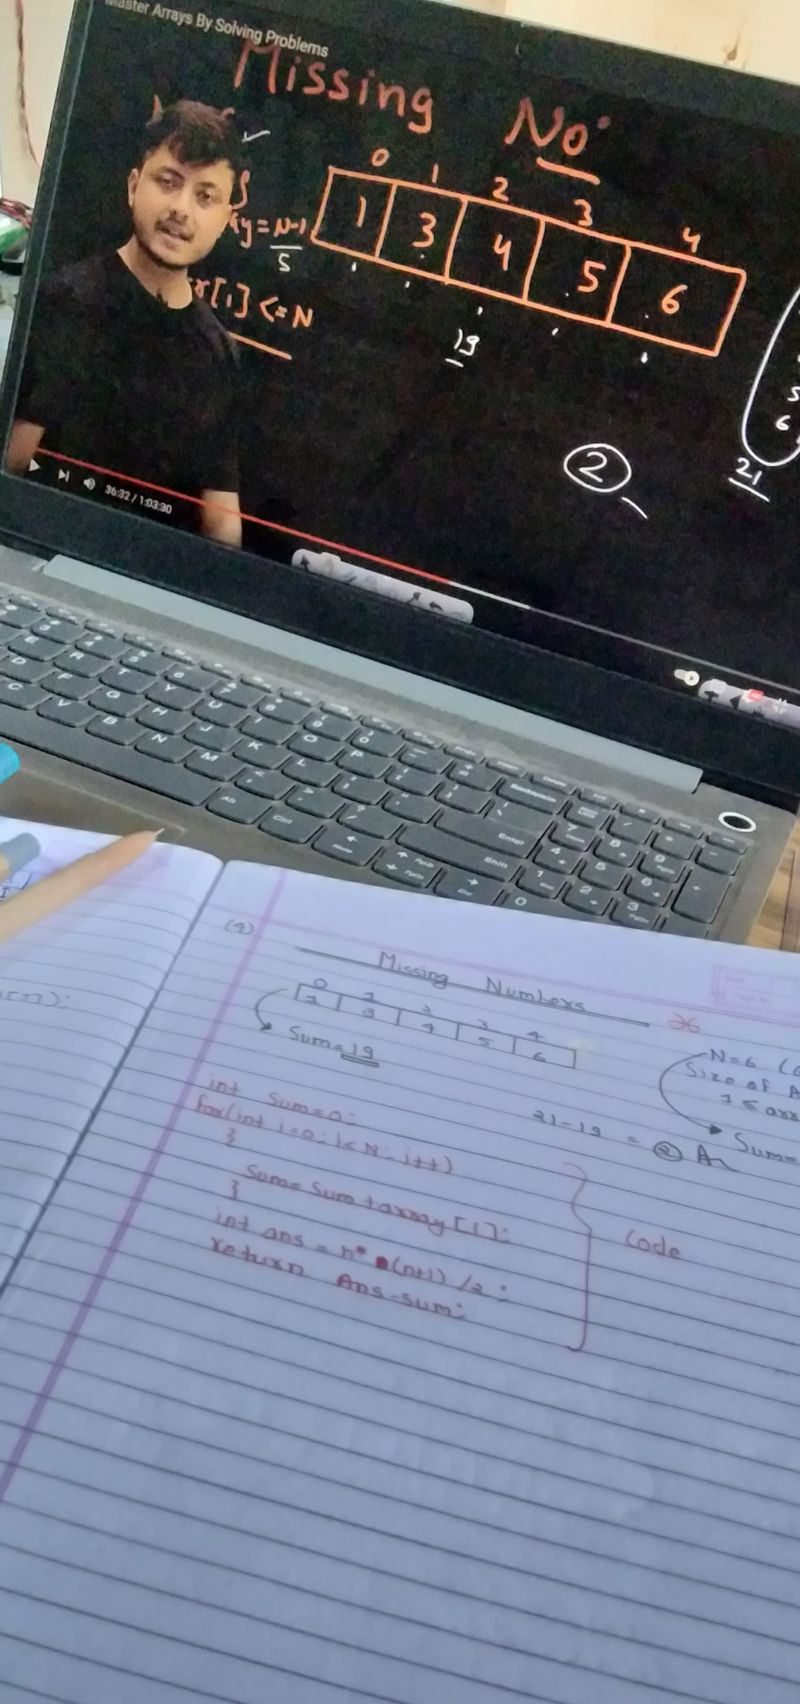 Master Arrays By Solving Problems
Missing No.
0 1 2 3 4
1 3 4 5 6
y = N-1
5
[i] <= N
19
5
6
2
21
36:32 / 1:03:30
(4)
Missing Numbers
26
0 1 2 3 4
1 3 4 5 6
Sum=19
N=6
Size of A
1 ≤ arr
Sum=
21-19 = 2
int Sum=0;
for(int i=0; i<N; i++)
{
Sum=Sum+array[i];
}
int ans = n* (n+1) /2;
return Ans-sum;
Code